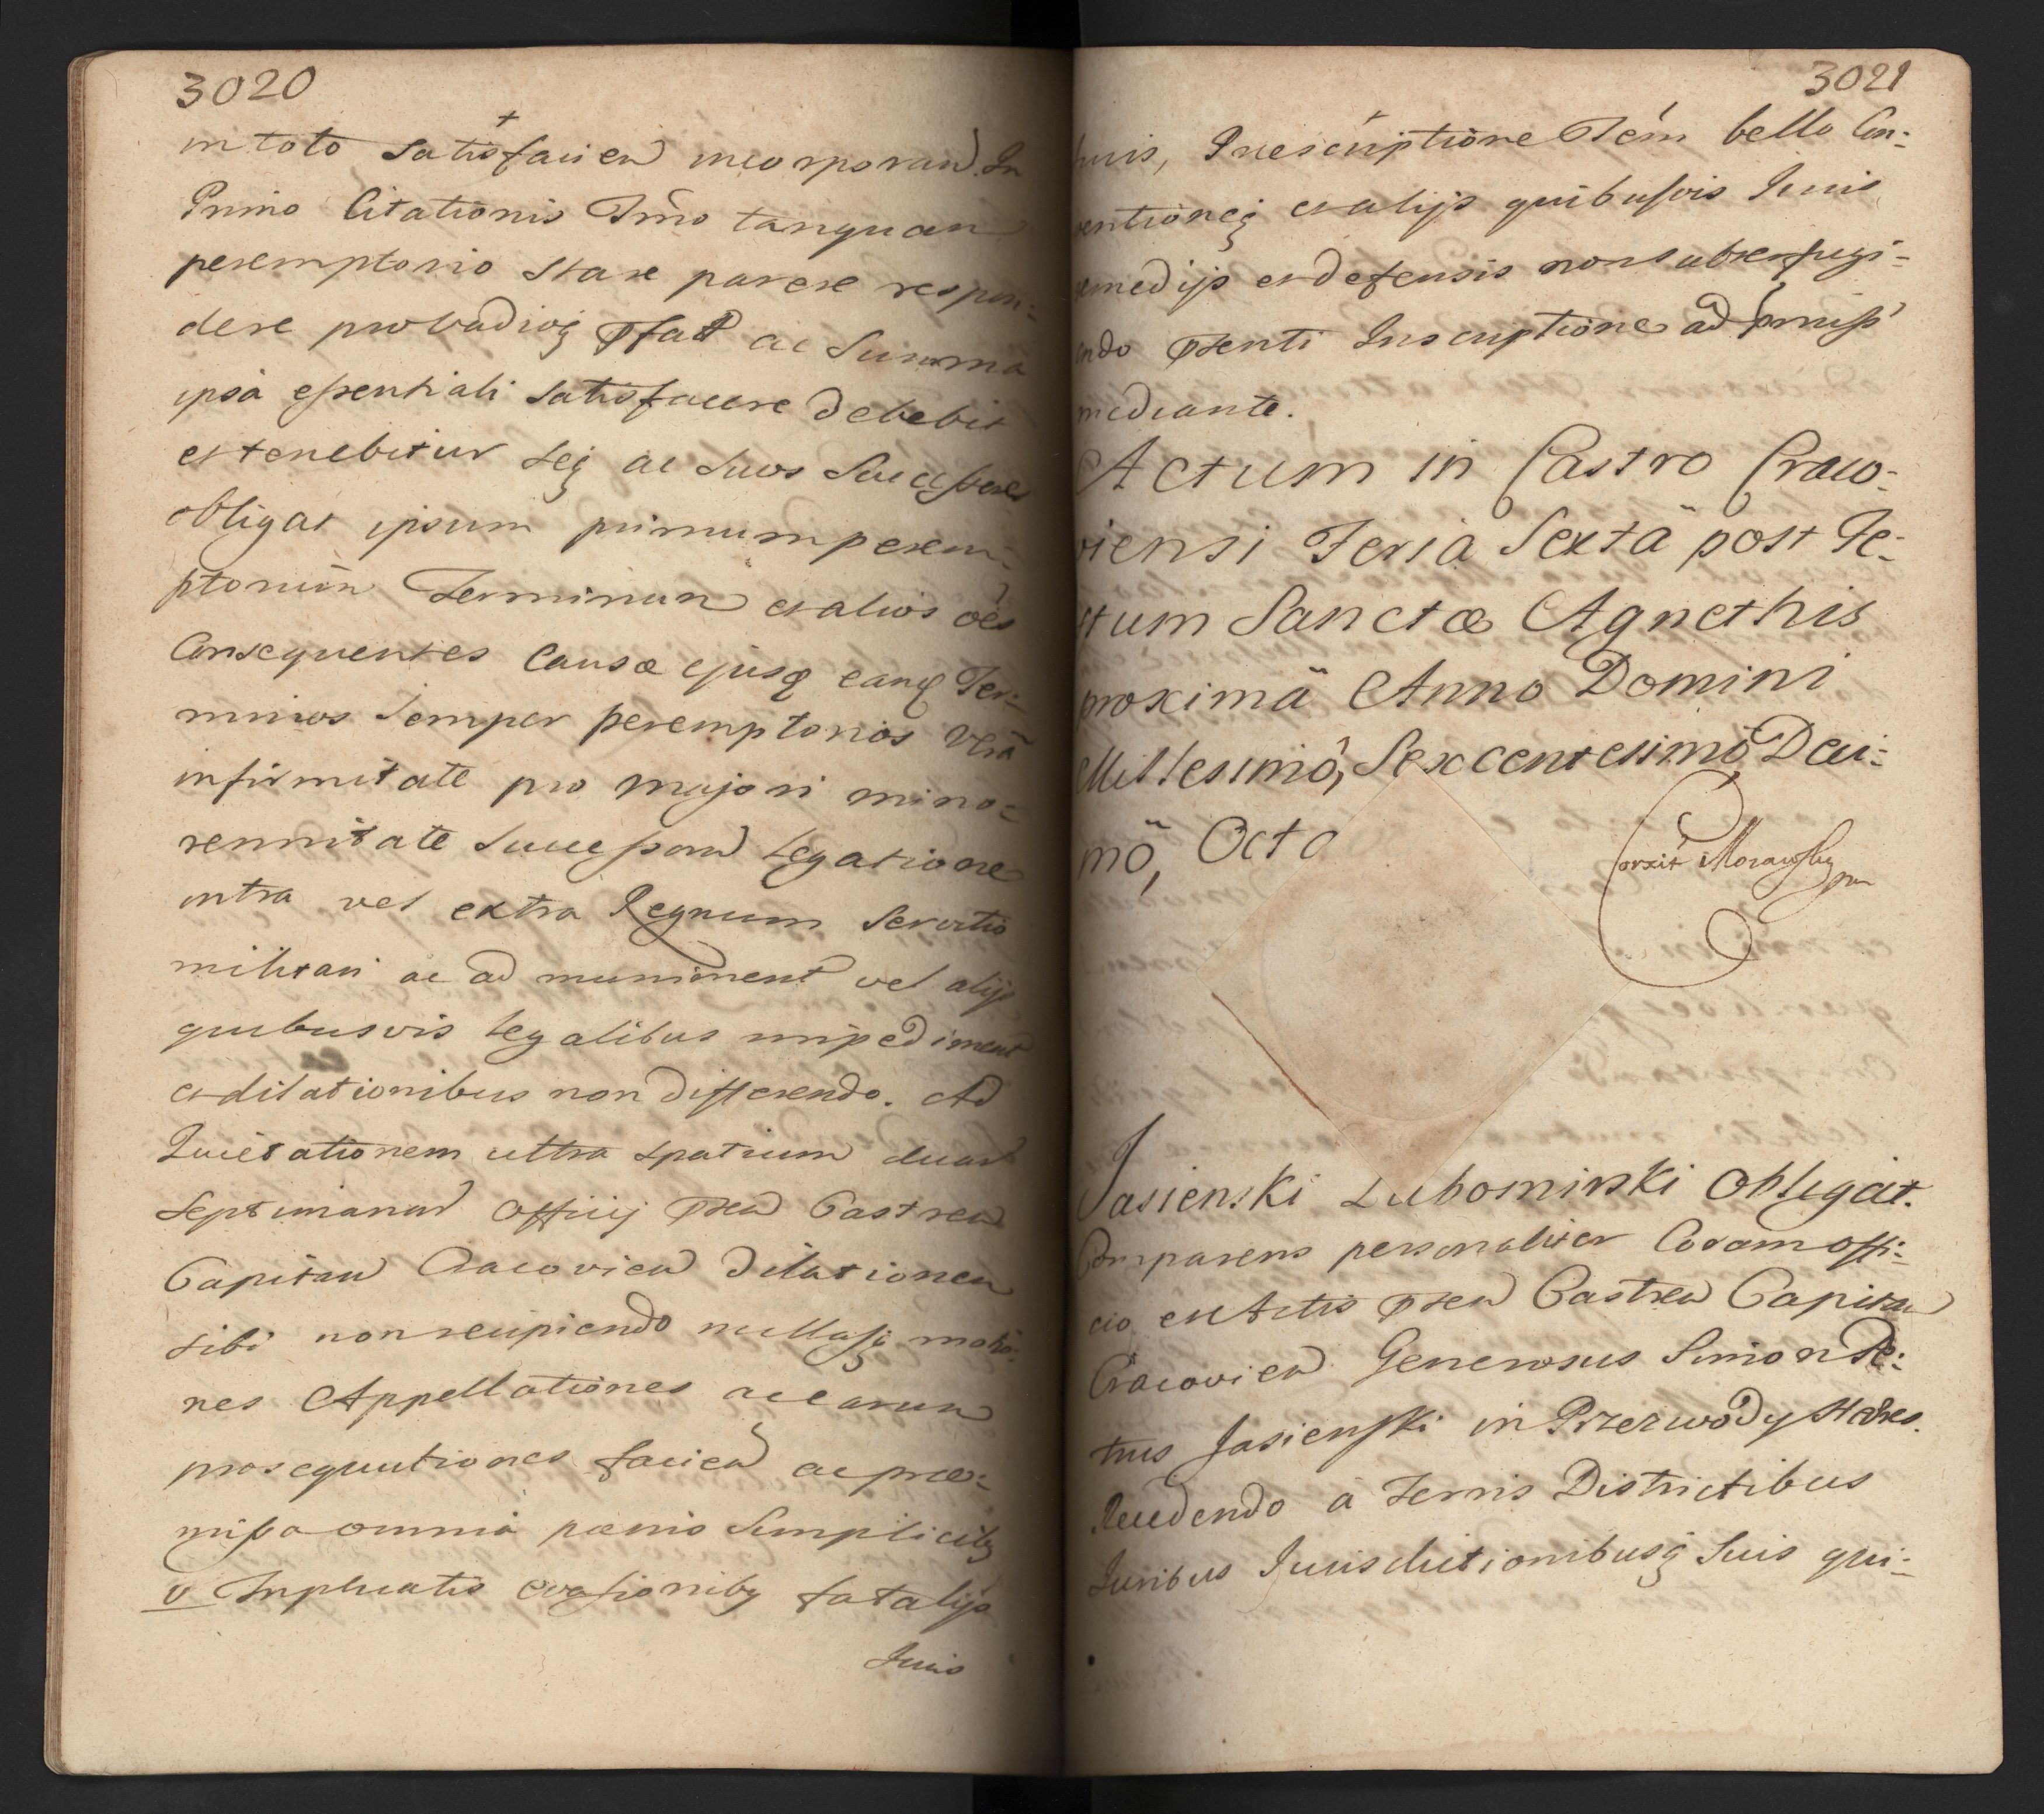 3020
in toto satisfacien incorporand. In
Primo Citationis Tmo tanquam
peremptorio stare parere respon:
dere probadioq pfat ac Summa
ipsa essentiali satisfacere debebit
et tenebitur seq ac suos Successores
obligat ipsum primum perem:
ptorium Terminum et alios oes
Consequentes causæ ejusq eanq Ter:
minos semper peremptorios vera
infirmitate pro majori mino:
rennitate Successorum legatione
intra vel extra Regnum servitio
militari ac ad muniment vel alijs
quibusvis legalibus impediment
et dilationibus non differendo. Ad
Quietationem ultra spatium duar
Septimanar Officij pren Castren
Capitan Cracovien dilationem
sibi non recipiendo nullasq motio:
nes Appellationes ac earum
prosequutiones facien ac præ:
missa omnia pœnis simplicibq
v Triplicatis evasionibq fatalijs
Juris
3021
huis, Præscriptione Tem bello Con:
ventioneq et alijs quibusvis Juris
remedijs et defensis non subterfugi:
endo prenti Inscriptione ad pmiss
mediante.
Actum in Castro Craco:
viensi Feria Sexta post Fe:
stum Sanctæ Agnethis
proxima Anno Domini
Millesimo, Sexcentesimo Deci:
mo, Octo
Corxit Morawsky mp
Jasienski Lubomirski Obligat.
Comparens personaliter Coram Offi:
cio et Actis pren Castren Capitan
Cracovien Generosus Simon Pe:
trus Jasienski in Przezwody Hæres.
Recedendo a Terris Districtibus
Juribus Jurisdictionibusq suis qui: